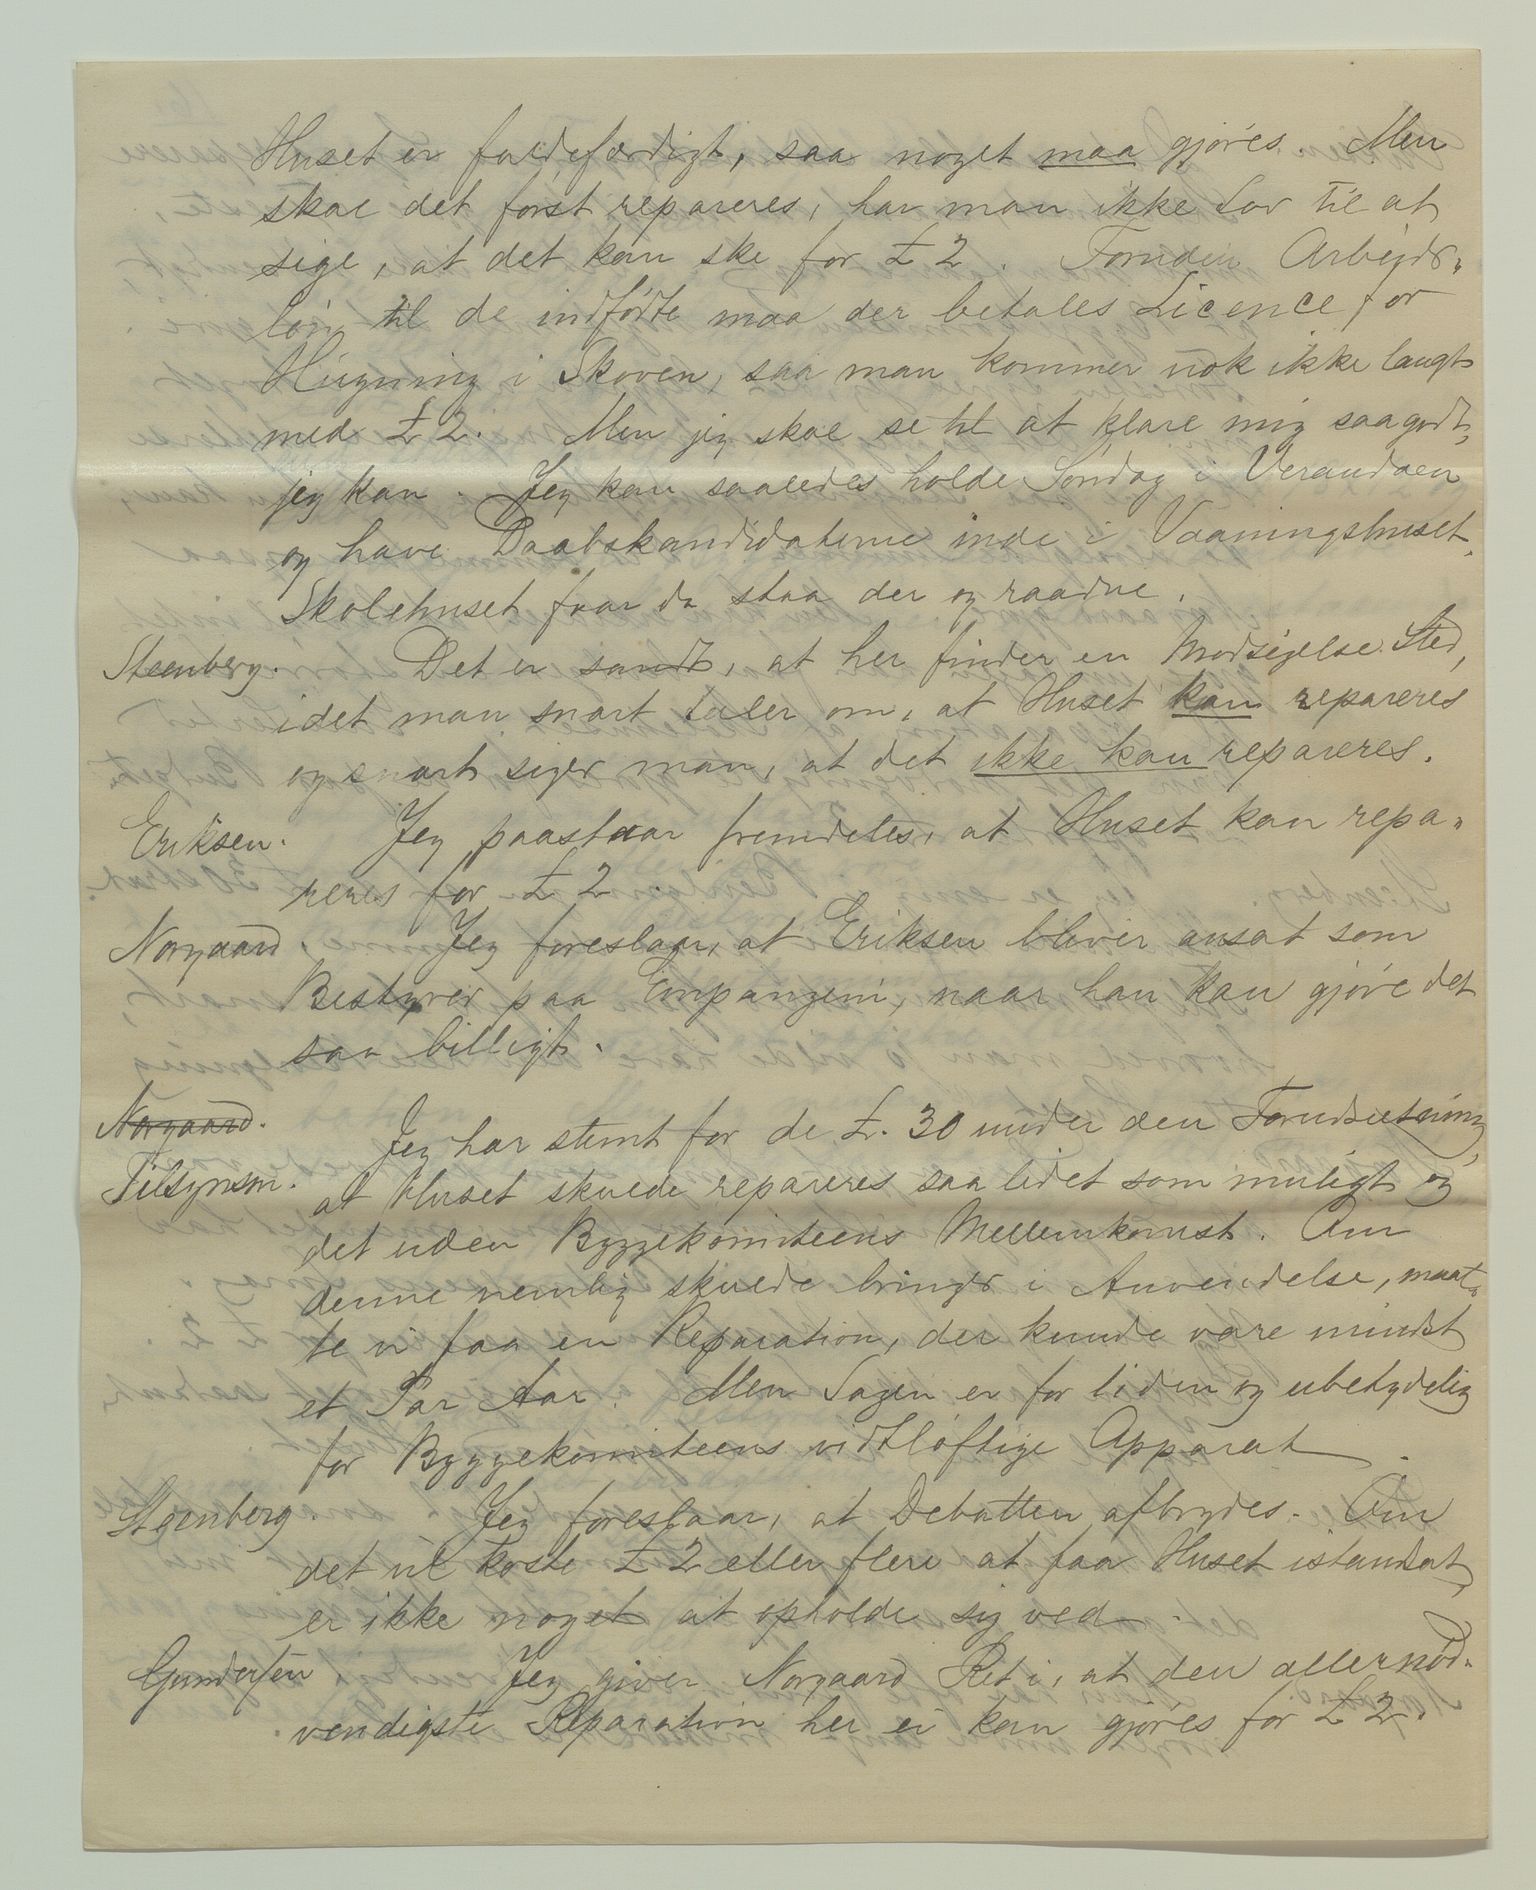 Huset er faldefærdigt, saa noget maa gjøres. Men
skal det først repareres, har man ikke Lov til at
sige, at det kan ske for £ 2. Foruden Arbejds-
løn til de indfødte maa der betales Licence for
Hugning i Skoven, saa man kommer nok ikke langt
med £ 2. Men jeg skal se til at klare mig saa godt,
jeg kan. Jeg kan saaledes holde Søndag i Verandaen
og have Daabskandidaterne inde i Vaaningshuset.
Skolehuset faar da staa der og raadne.
Steenberg. Det er sandt, at her finder en Modsigelse Sted,
idet man snart taler om, at Huset kan repareres
og snart siger man, at det ikke kan repareres.
Eriksen. Jeg paastaar fremdeles, at Huset kan repa-
reres for £ 2.
Norgaard. Jeg foreslaar, at Eriksen bliver ansat som
Bestyrer paa Empangeni, naar han kan gjøre det
saa billigt.
Norgaard.
Tilsynsm. Jeg har stemt for de £. 30 under den Forudsætning,
at Huset skulde repareres saa lidet som muligt og
det uden Byggekomiteens Mellemkomst. Om
denne nemlig skulde bringes i Anvendelse, maat-
te vi faa en Reparation, der kunde vare mindst
et Par Aar. Men Sagen er for liden og ubetydelig
for Byggekomiteens vidtløftige Apparat.
Steenberg. Jeg foreslaar, at Debatten afbrydes. Om
det vil koste £ 2 eller flere at faa Huset istandsat,
er ikke noget at opholde sig ved.
Gundersen Jeg giver Norgaard Ret i, at den allernød-
vendigste Reparation her ei kan gjøres for £ 2.